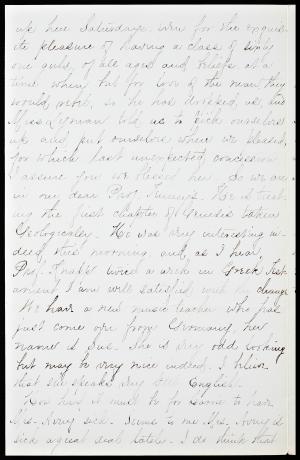 up here Saturdays. Even for the exquis-
ite pleasure of having a class of sixty
one girls, of all ages and beliefs, at a
time when, but for love of the man, they
would rebel, so he has dropped us, and
Miss Lyman told us to pick ourselves
up and put ourselves where we pleased,
for which last unexpected concession
I assure you we blessed her. So we are
in our dear Prof. He is treat-
ing the first chapter of Genesis taken
Geologically. He was very interesting in-
deed, this morning, and, as I hear
Prof. twice a week in Greek Test-
ament I am well satisfied with the change.
We have a new music teacher who has
just come over from Germany, her
name is She is very odd looking
but may be very nice indeed. I believe
that she speaks very little English.
How hard it must be for to have
Mrs. Avery sick. Seems to me Mrs. Avery is
sick a great deal lately. I do think that